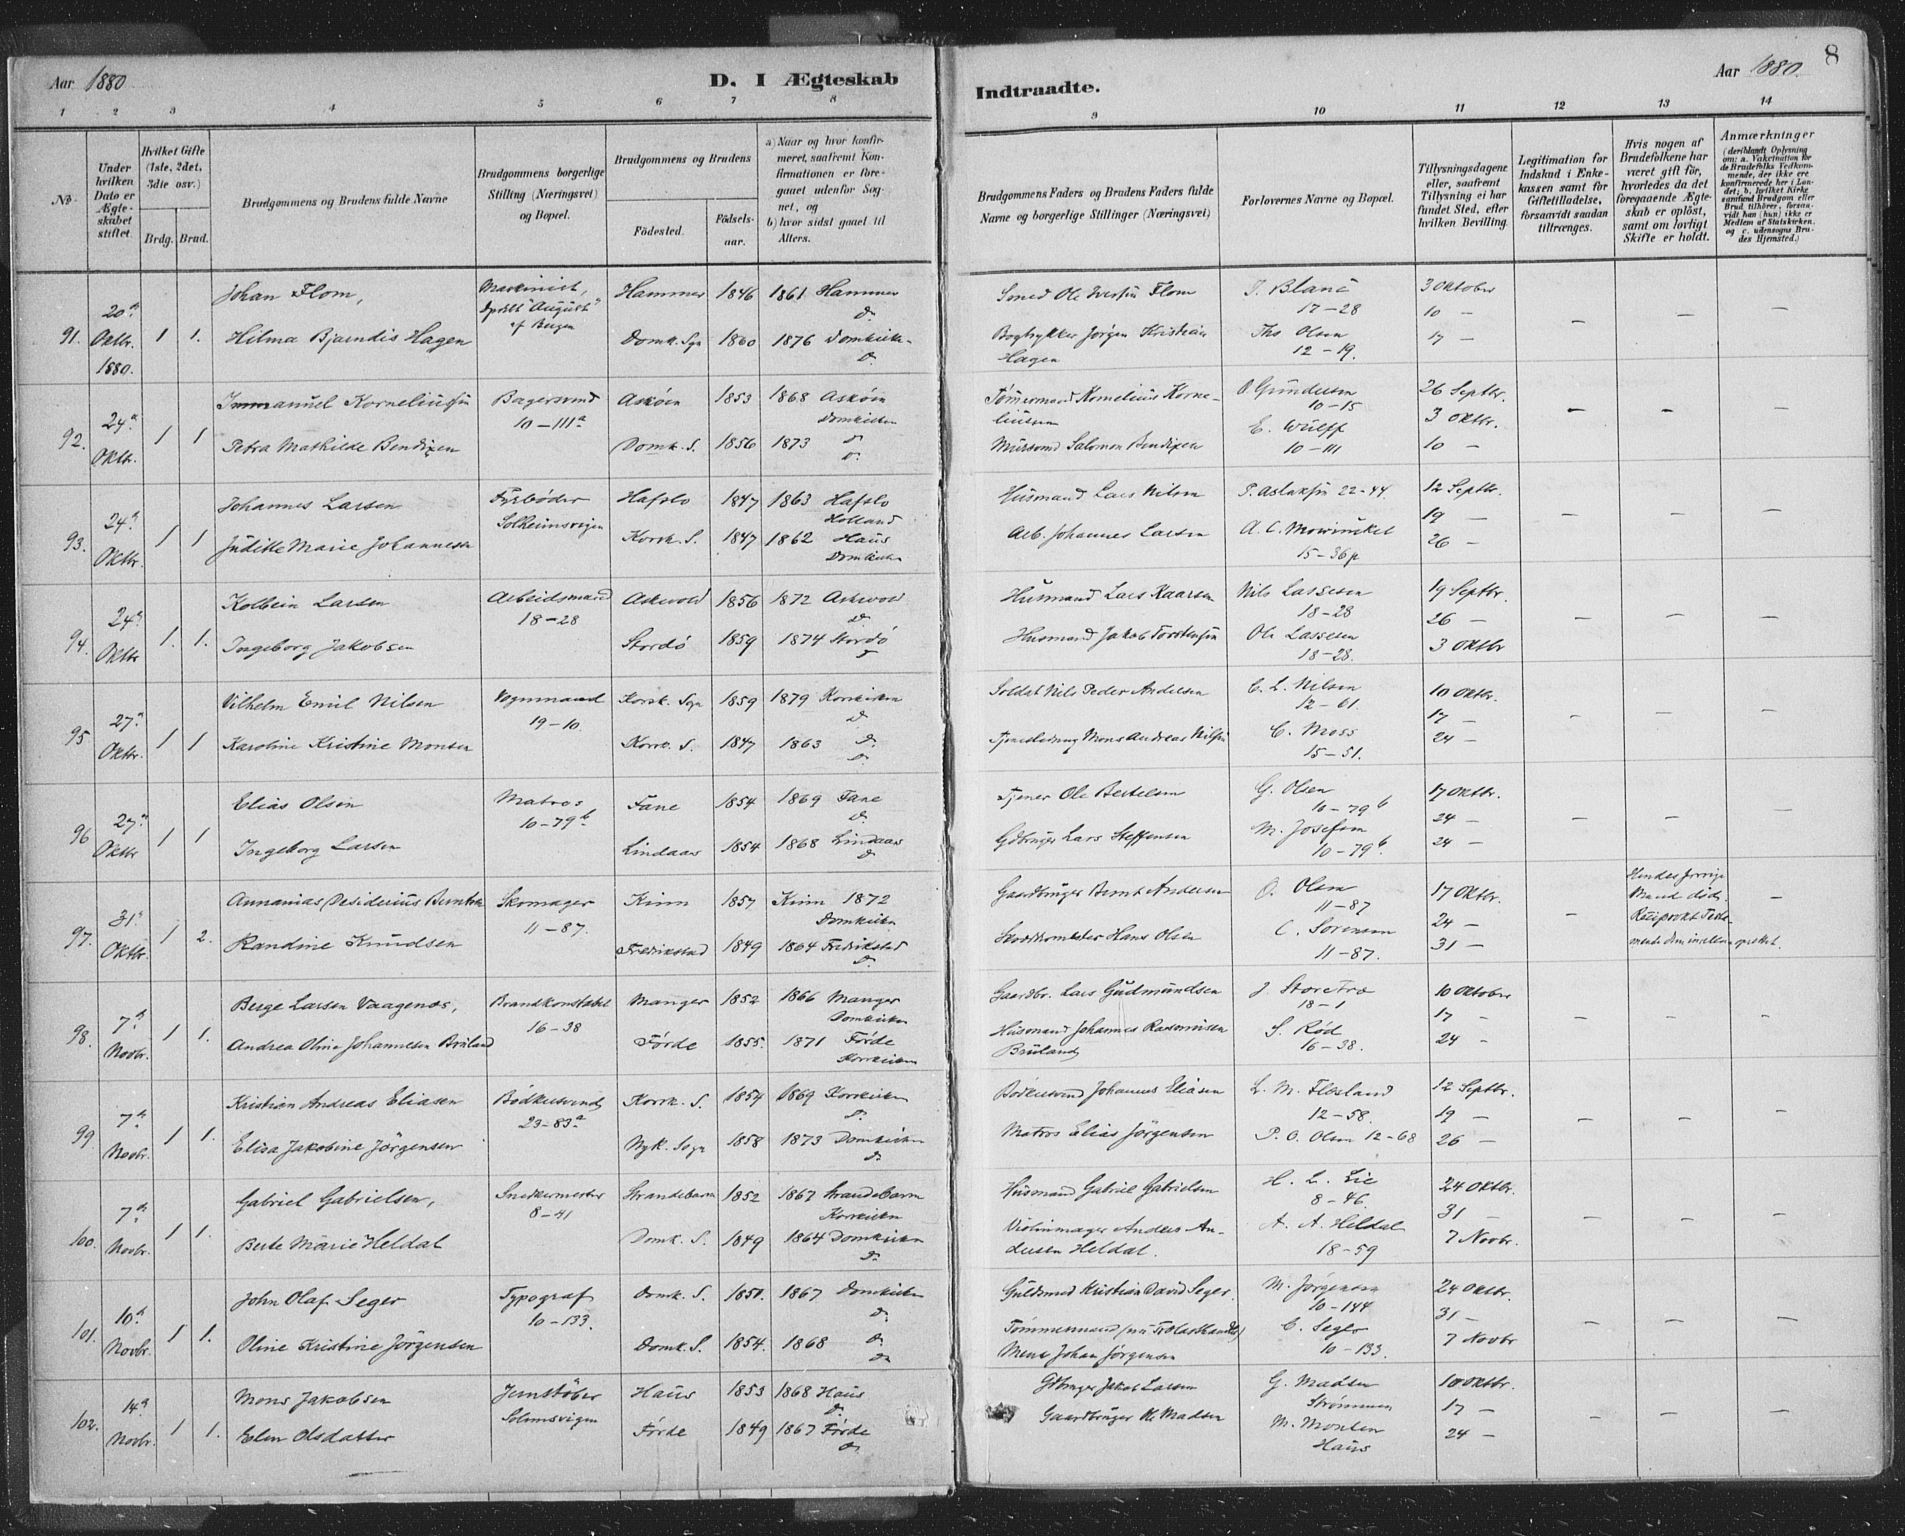 Aar 1880
D. I Ægteskab
Indtraadte.
Aar 1880.
8
1 2 3 4 5 6 7 8 9 10 11 12 13 14
No.
Under hvilken Dato er Ægteskabet stiftet.
Hvilket Gifte (1ste, 2det, 3die osv.)
Brdg.
Brud.
Brudgommens og Brudens fulde Navne
Brudgommens borgerlige Stilling (Næringsvei) og Bopæl.
Brudgommens og Brudens
Födested.
Födselsaar.
a) Naar og hvor konfirmeret, saafremt Konfirmationen er foregaaet udenfor Sognet, og
b) hvor sidst gaaet til Alters.
Brudgommens Faders og Brudens Faders fulde Navne og borgerlige Stillinger (Næringsvei)
Forlovernes Navne og Bopæl.
Tillysningsdagene eller, saafremt Tillysning ei har fundet Sted, efter hvilken Bevilling.
Legitimation for Indskud i Enkekassen samt for Giftetilladelse, forsaavidt saadan tiltrænges.
Hvis nogen af Brudefolkene har været gift för, hvorledes da det foregaaende Ægteskab er oplöst, samt om lovligt Skifte er holdt.
Anmærkninger
(deriblandt Oplysning om: a. Vaksination for de Brudefolks Vedkommende, der ikke ere konfirmerede her i Landet; b. hvilket Kirkesamfund Brudgom eller Brud tilhörer, forsaavidt han (hun) ikke er Medlem af Statskirken, og c. udensogns Brudes Hjemsted.)
91. 20de Oktbr. 1880. 1 1.
Johan Flom, Maskinist, "August" af Bergen Hammer 1846 1861 Hammer do
Smed Ole Iversen Flom
17-28
3 Oktober
Hilma Bjarndis Hagen Domk. Sgn 1860 1876 Domkirken do
Bogtrykker Jørgen Kristian Hagen
Ths Olsen
12-19.
10 —
17 —
92. 24de Oktbr. 1 1
Immanuel Korneliussen Bagersvend 10-111a Askøen 1853 1868 Askøen Domkirken
Tømermand Kornelius Korneliussen
O Gundersen
10-15
26 Septbr.
3 Oktbr.
Petra Mathilde Bendixen Domk. S. 1856 1873 do do
Mursvend Salomon Bendixen
E. Wulff
10-111
10 —
93. 24de Oktbr. 1 1
Johannes Larsen Fyrbøder Solheimsvigen Hafslo 1847 1863 Hafslo Holland
Husmand Lars Nilsen
P. Aslaksen 22-44.
12 Septbr.
19 —
Juditte Marie Johannesen Korsk. S. 1847 1862 Haus Domkirken
Arb. Johannes Larsen
A. C. Mowinckel
15-36p
26 —
94. 24de Oktbr 1. 1.
Kolbein Larsen Arbeidsmand 18-28 Askvold 1856 1872 Askvold do
Husmand Lars Kaarsen
Nils Lassesen
18-28
19 Septbr.
26 —
Ingeborg Jakobsen Stordø 1859 1874 Stordö do
Husmand Jakob Torstensen
Ole Lassesen
18-28.
3 Oktbr
95 27de Oktbr. 1 1
Vilhelm Emil Nilsen Vognmand 19-10. Korsk. Sogn 1859 1879 Korskirken do
Soldat Nils Peder Andersen
C. L. Nilsen
12-61.
10 Oktbr.
17 —
Karoline Kristine Monsen Korsk. S. 1847 1863 do. do
Mons Andreas Nilsen
C. Moss
15-51.
24 —
96 27de Oktbr 1 1
Elias Olsen Matros 10-79b Fane 1854 1869 Fane do.
Tjener Ole Bertelsen
G. Olsen
10-79b
17 Oktbr.
24 —
Ingeborg Larsen Lindaas 1854 1868 Lindaas do
Gdbruger Lars Steffensen
M. Josefsen
10-79b.
24 —
97. 31te Oktbr. 1 2.
Annanias Desiderius Berntsen Skomager 11-87. Kinn 1857 Kinn 1872 Domkirken
Gaardbruger Bernt Andersen
O. Olsen
11-87
17 Oktbr.
24 —
Hendes forrige Mand död. Reciprokt Testamente dem imellem oprettet.
Randine Knudsen Fredrikstad 1849 1864 Fredrikstad do.
Hans Olsen
C. Sörensen
11-87.
31 —
98. 7de Novbr. 1 1.
Berge Larsen Vaagenes, Brandkonstabel 16-38 Manger 1852 1866 Manger Domkirken
Gaardbr. Lars Gudmundsen
J. Storetræ
18-1
10 Oktober
17 —
Andrea Oline Johannesen Bruland Förde 1855. 1871 Förde Korskirken
Husmand Johannes Rasmusen Bruland
S. Röd
16-38.
24 —
99. 7de Novbr. 1 1.
Kristian Andreas Eliasen Bödkersvend 23-83a Korsk. S. 1854 1869 Korskirken do.
Bödkersvend Johannes Eliasen
L. M. Flesland
12-58.
12 Septbr.
19 —
Elisa Jakobine Jörgensen Nyk. Sogn 1858 1873 Domkirken do
Matros Elias Jörgensen
P. O. Olsen 12-68
26 —
100. 7de Novbr. 1 1.
Gabriel Gabrielsen, Snedkermester 8-41 Strandebarm 1852 1867 Strandebarm Korskirken
Husmand Gabriel Gabrielsen
H. L. Lie
8-46.
24 Oktbr.
31 —
Berte Marie Heldal Domk. S. 1849 1864 Domkirken do
Violinmager Anders Andersen Heldal.
A. A. Heldal
18-59
7 Novbr.
101. 10de Novbr. 1 1.
John Olaf Seger Typograf 10-133. Domk. S. 1850. 1867 Domkirken do.
Guldsmed Kristian David Seger.
M. Jörgensen
10-144.
24 Oktbr.
31 —
Oline Kristine Jörgensen Domk. S. 1854. 1868 do do
Tömmermand (nu Trælasthandler) Mens Johan Jörgensen
C. Seger
10-133.
7 Novbr
102. 14de Novbr. 1 1.
Mons Jakobsen Jernstöber Solemsvigen Haus 1853 1868 Haus do
Gdbruger Jakob Larsen
G. Madsen
Strömmen
10 Oktbr.
17 —
Elen Olsdatter Förde 1849 1867 Förde do
Gaardbruger Madsen
M. Monsen
Haus
24 —